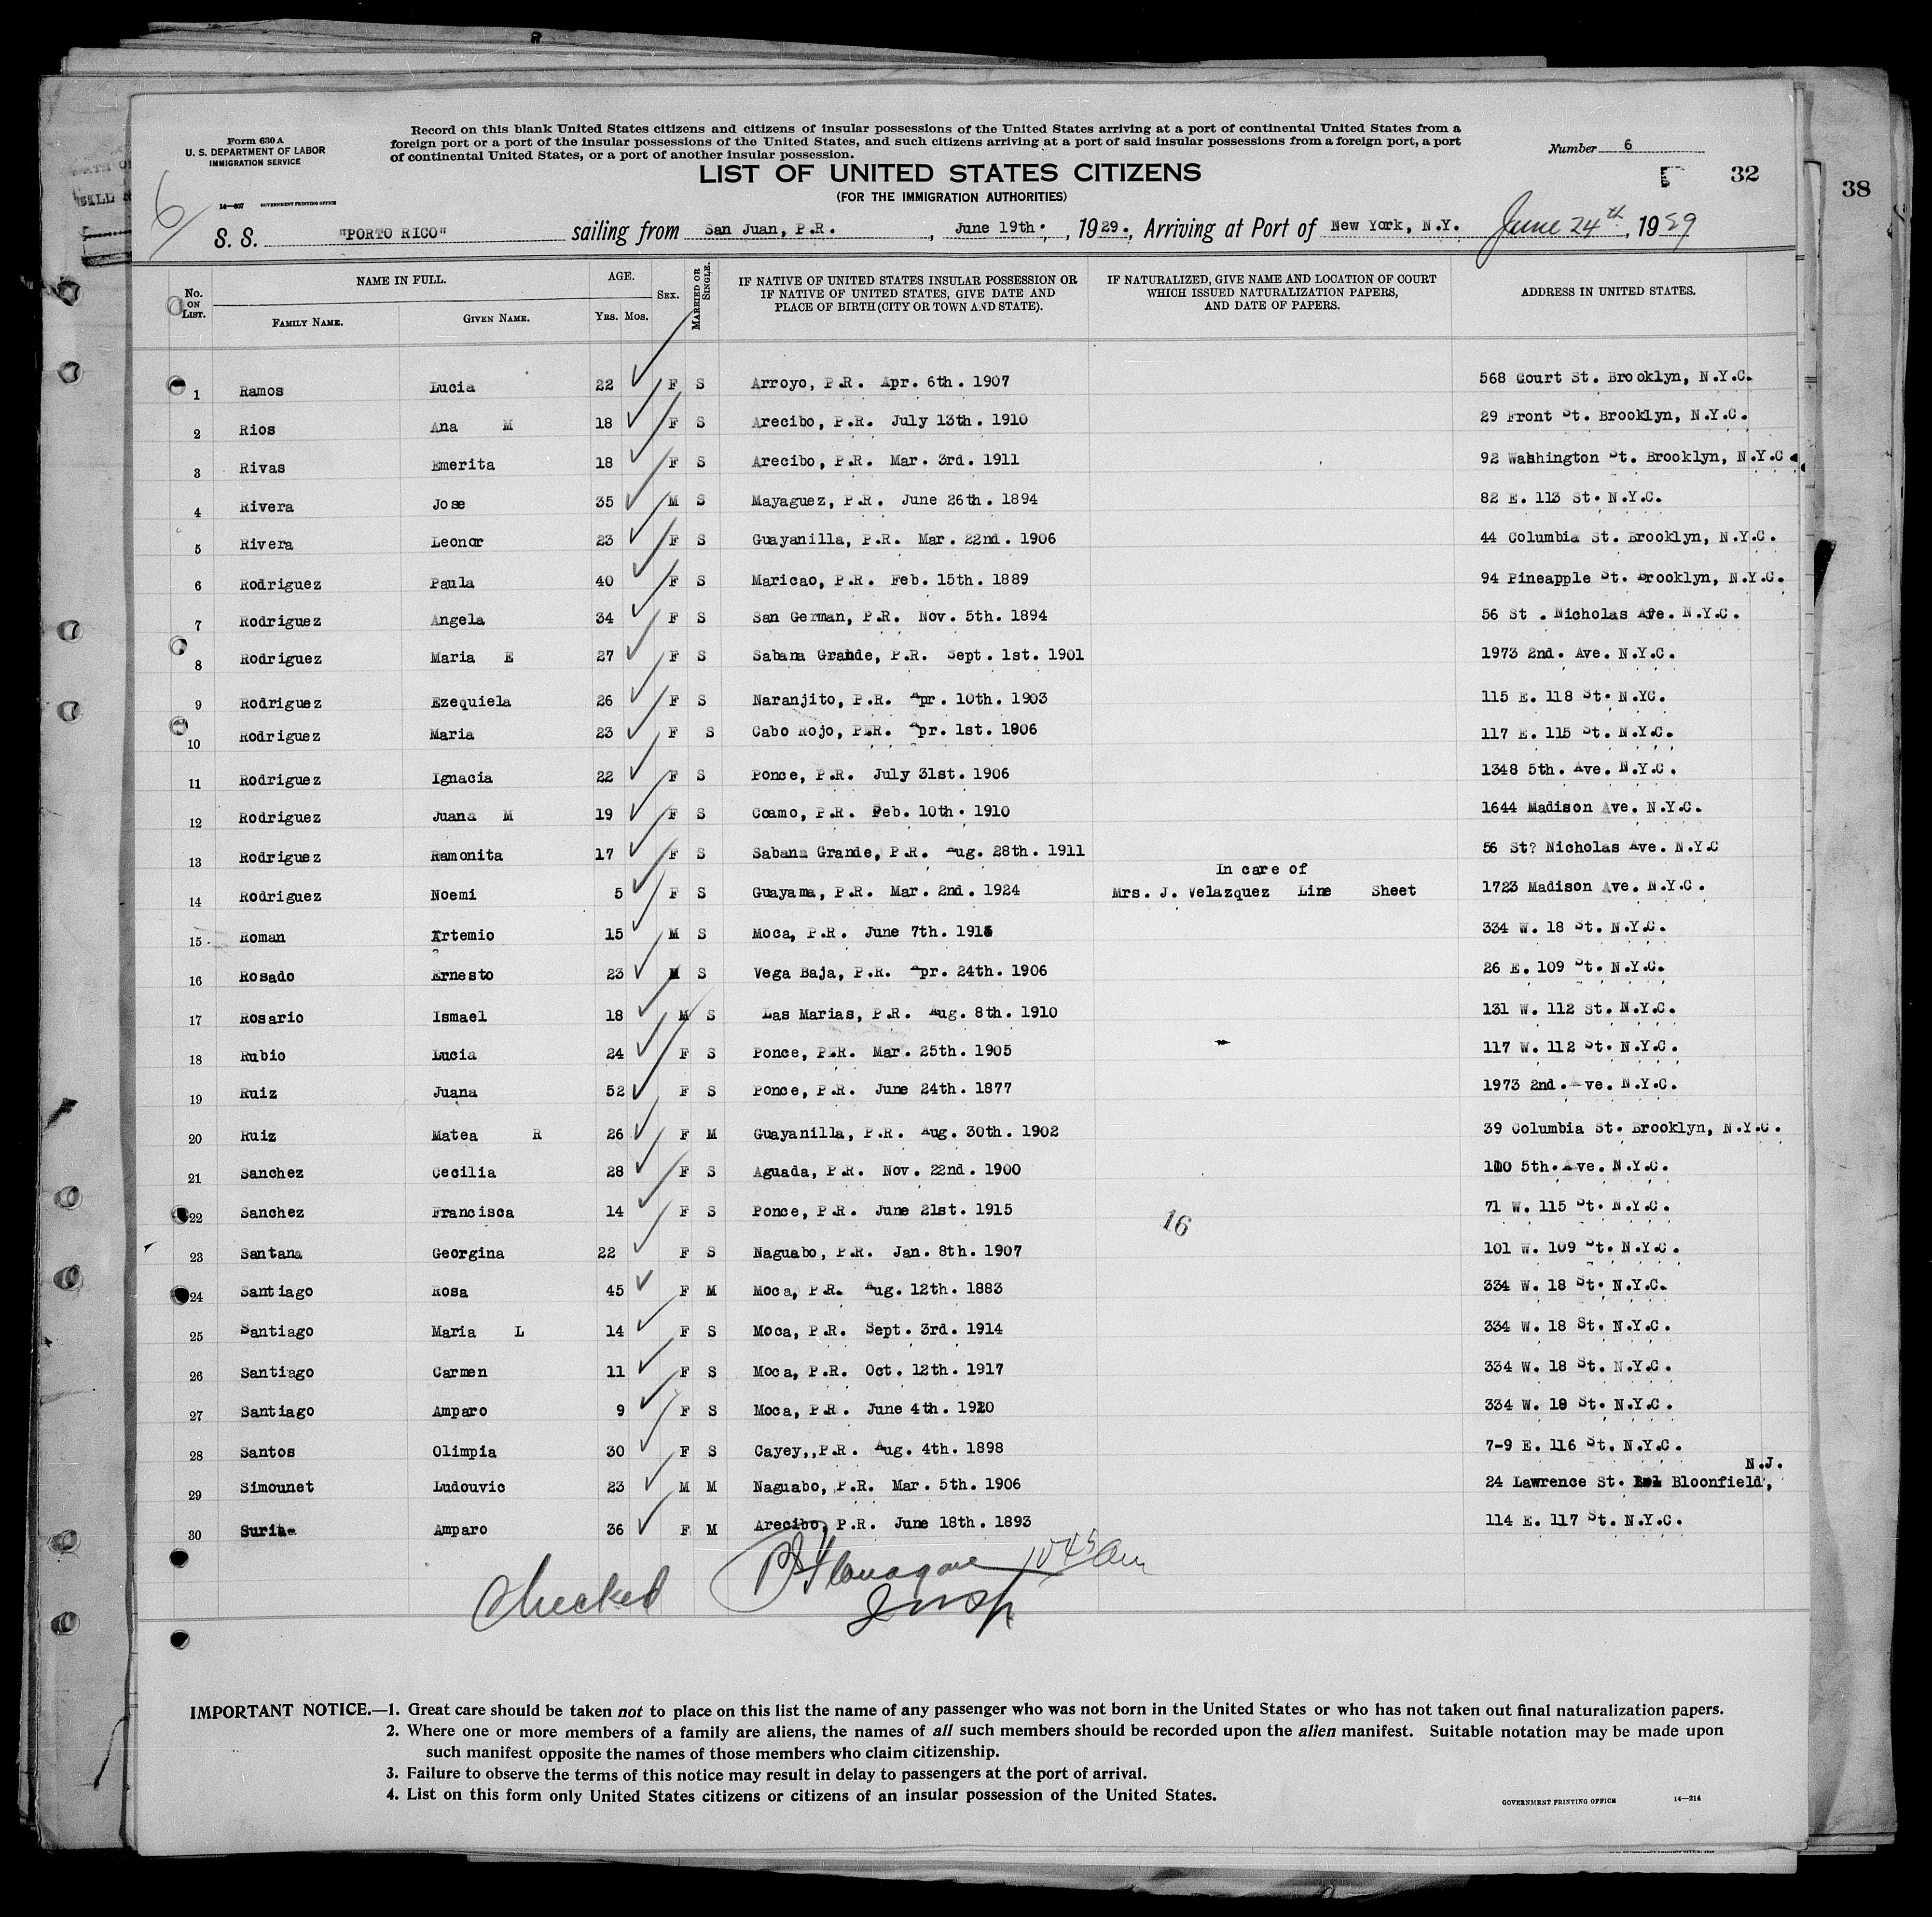 Form 630 A
U. S. DEPARTMENT OF LABOR
IMMIGRATION SERVICE
14—607 GOVERNMENT PRINTING OFFICE
Record on this blank United States citizens and citizens of insular possessions of the United States arriving at a port of continental United States from a
foreign port or a port of the insular possessions of the United States, and such citizens arriving at a port of said insular possessions from a foreign port, a port
of continental United States, or a port of another insular possession.
Number 6
LIST OF UNITED STATES CITIZENS
(FOR THE IMMIGRATION AUTHORITIES)
32
38
6
S. S. "PORTO RICO" sailing from San Juan, P.R. , June 19th. , 1929., Arriving at Port of New York, N.Y. June 24th, 1929
No. ON LIST. NAME IN FULL. FAMILY NAME. GIVEN NAME. AGE. YRS. MOS. SEX. MARRIED OR SINGLE. IF NATIVE OF UNITED STATES INSULAR POSSESSION OR IF NATIVE OF UNITED STATES, GIVE DATE AND PLACE OF BIRTH (CITY OR TOWN AND STATE). IF NATURALIZED, GIVE NAME AND LOCATION OF COURT WHICH ISSUED NATURALIZATION PAPERS, AND DATE OF PAPERS. ADDRESS IN UNITED STATES.
1 Ramos Lucia 22 F S Arroyo, P.R. Apr. 6th. 1907 568 Court St. Brooklyn, N.Y.C.
2 Rios Ana M 18 F S Arecibo, P.R. July 13th. 1910 29 Front St. Brooklyn, N.Y.C.
3 Rivas Emerita 18 F S Arecibo, P.R. Mar. 3rd. 1911 92 Washington St. Brooklyn, N.Y.C.
4 Rivera Jose 35 M S Mayaguez, P.R. June 26th. 1894 82 E. 113 St. N.Y.C.
5 Rivera Leonor 23 F S Guayanilla, P.R. Mar. 22nd. 1906 44 Columbia St. Brooklyn, N.Y.C.
6 Rodriguez Paula 40 F S Maricao, P.R. Feb. 15th. 1889 94 Pineapple St. Brooklyn, N.Y.C.
7 Rodriguez Angela 34 F S San German, P.R. Nov. 5th. 1894 56 St . Nicholas Ave. N.Y.C.
8 Rodriguez Maria E 27 F S Sabana Grande, P.R. Sept. 1st. 1901 1973 2nd. Ave. N.Y.C.
9 Rodriguez Ezequiela 26 F S Naranjito, P.R. Apr. 10th. 1903 115 E. 118 St. N.YC.
10 Rodriguez Maria 23 F S Cabo Rojo, P.R. Apr. 1st. 1906 117 E. 115 St. N.Y.C.
11 Rodriguez Ignacia 22 F S Ponce, P.R. July 31st. 1906 1348 5th. Ave. N.Y.C.
12 Rodriguez Juana M 19 F S Coamo, P.R. Feb. 10th. 1910 1644 Madison Ave. N.Y.C.
13 Rodriguez Ramonita 17 F S Sabana Grande, P.R. Aug. 28th. 1911 56 St? Nicholas Ave. N.Y.C
In care of
14 Rodriguez Noemi 5 F S Guayama, P.R. Mar. 2nd. 1924 Mrs. J. Velazquez Line Sheet 1723 Madison Ave. N.Y.C.
15 Roman Artemio 15 M S Moca, P.R. June 7th. 334 W. 18 St. N.Y.C.
16 Rosado Ernesto 23 M S Vega Baja, P.R. Apr. 24th. 1906 26 E. 109 St. N.Y.C.
17 Rosario Ismael 18 M S Las Marias, P.R. Aug. 8th. 1910 131 W. 112 St. N.Y.C.
18 Rubio Lucia 24 F S Ponce, P.R. Mar. 25th. 1905 117 W. 112 St. N.Y.C.
19 Ruiz Juana 52 F S Ponce, P.R. June 24th. 1877 1973 2nd. Ave. N.Y.C.
20 Ruiz Matea R 26 F M Guayanilla, P.R. Aug. 30th. 1902 39 Columbia St. Brooklyn, N.Y.C.
21 Sanchez Cecilia 28 F S Aguada, P.R. Nov. 22nd. 1900 5th. Ave. N.Y.C.
22 Sanchez Francisca 14 F S Ponce, P.R. June 21st. 1915 16 71 W. 115 St. N.Y.C.
23 Santana Georgina 22 F S Naguabo, P.R. Jan. 8th. 1907 101 W. 109 St. N.Y.C.
24 Santiago Rosa 45 F M Moca, P.R. Aug. 12th. 1883 334 W. 18 St. N.Y.C.
25 Santiago Maria L 14 F S Moca, P.R. Sept. 3rd. 1914 334 W. 18 St. N.Y.C.
26 Santiago Carmen 11 F S Moca, P.R. Oct. 12th. 1917 334 W. 18 St. N.Y.C.
27 Santiago Amparo 9 F S Moca, P.R. June 4th. 1920 334 W. 18 St. N.Y.C.
28 Santos Olimpia 30 F S Cayey,,P.R. Aug. 4th. 1898 7-9 E. 116 St. N.Y.C.
N.J.
29 Simounet Ludouvic 23 M M Naguabo, P.R. Mar. 5th. 1906 24 Lawrence St. Bloonfield,
30 Amparo 36 F M Arecibo, P.R. June 18th. 1893 114 E. 117 St. N.Y.C.
Checked P Flanagan 1045 am
Insp
IMPORTANT NOTICE.—1. Great care should be taken not to place on this list the name of any passenger who was not born in the United States or who has not taken out final naturalization papers.
2. Where one or more members of a family are aliens, the names of all such members should be recorded upon the alien manifest. Suitable notation may be made upon
such manifest opposite the names of those members who claim citizenship.
3. Failure to observe the terms of this notice may result in delay to passengers at the port of arrival.
4. List on this form only United States citizens or citizens of an insular possession of the United States.
GOVERNMENT PRINTING OFFICE 14—214